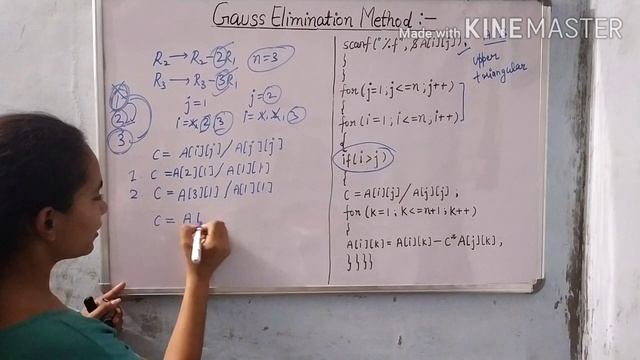 Gauss Elimination Method :-
Made with KINEMASTER
R₂ → R₂ - 2R₁
n=3
R₃ → R₃ - 3R₁
j=1
j=2
1
2
3
i=1,2,3
i=1,2,3
C = A[i][j] / A[j][j]
1. C = A[2][1] / A[1][1]
2. C = A[3][1] / A[1][1]
C = A[
scanf("%f", &A[i][j]);
}
}
upper
triangular
for(j=1; j<=n; j++)
{
for(i=1; i<=n; i++)
{
if(i>j)
{
C = A[i][j] / A[j][j];
for(k=1; k<=n+1; k++)
{
A[i][k] = A[i][k] - C* A[j][k];
}}}}